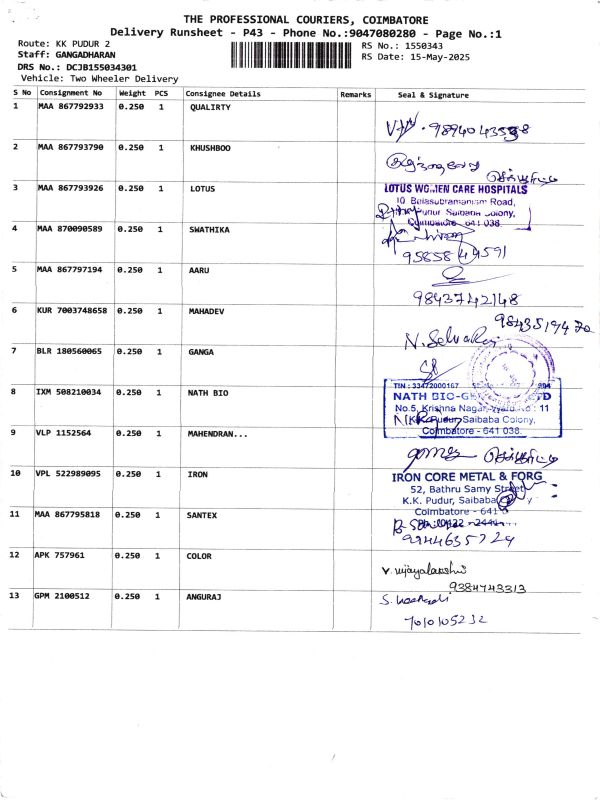 THE PROFESSIONAL COURIERS, COIMBATORE
Delivery Runsheet - P43 - Phone No.:9047080280 - Page No.:1
Route: KK PUDUR 2
RS No.: 1550343
Staff: GANGADHARAN
RS Date: 15-May-2025
DRS No.: DCJB155034301
Vehicle: Two Wheeler Delivery
S No Consignment No Weight PCS Consignee Details Remarks Seal & Signature
1 MAA 867792933 0.250 1 QUALIRTY
2 MAA 867793790 0.250 1 KHUSHBOO
3 MAA 867793926 0.250 1 LOTUS
LOTUS WOMEN CARE HOSPITALS
10, Balasubramaniam Road,
Saibaba Colony,
Coimbatore - 641 038.
4 MAA 870090589 0.250 1 SWATHIKA
9585844591
5 MAA 867797194 0.250 1 AARU
9843742148
6 KUR 7003748658 0.250 1 MAHADEV
9843519470
N. Selvaraj
7 BLR 180560065 0.250 1 GANGA
8 IXM 508210034 0.250 1 NATH BIO
TIN : 33472000167
NATH BIO-
No.5, Krishna Nagar, : 11
Saibaba Colony,
Coimbatore - 641 038.
9 VLP 1152564 0.250 1 MAHENDRAN...
10 VPL 522989095 0.250 1 IRON
IRON CORE METAL & FORG
52, Bathru Samy Street
K.K. Pudur, Saibaba
Coimbatore - 641
11 MAA 867795818 0.250 1 SANTEX
9244635724
12 APK 757961 0.250 1 COLOR
V. vijayalakshmi
9384743313
13 GPM 2100512 0.250 1 ANGURAJ
7010105232